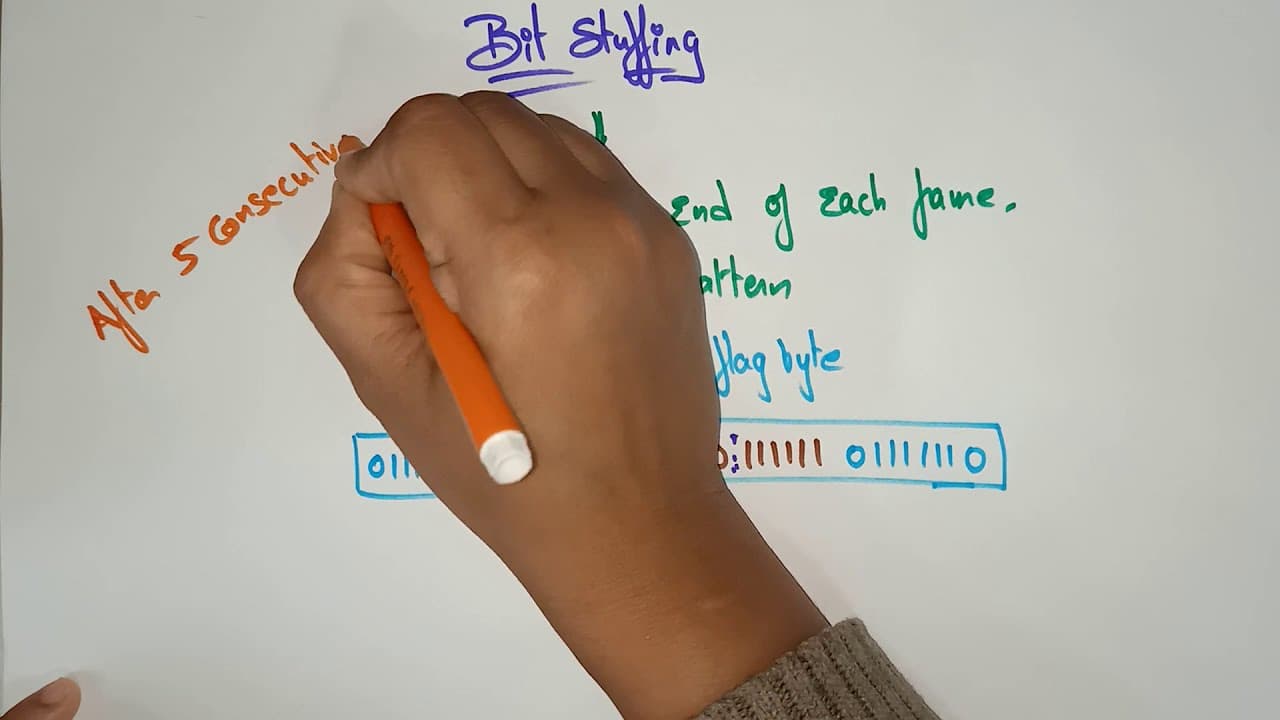 Bit Stuffing
After 5 Consecutive
End of Each fame.
flag byte
0111 0 111111 01111110